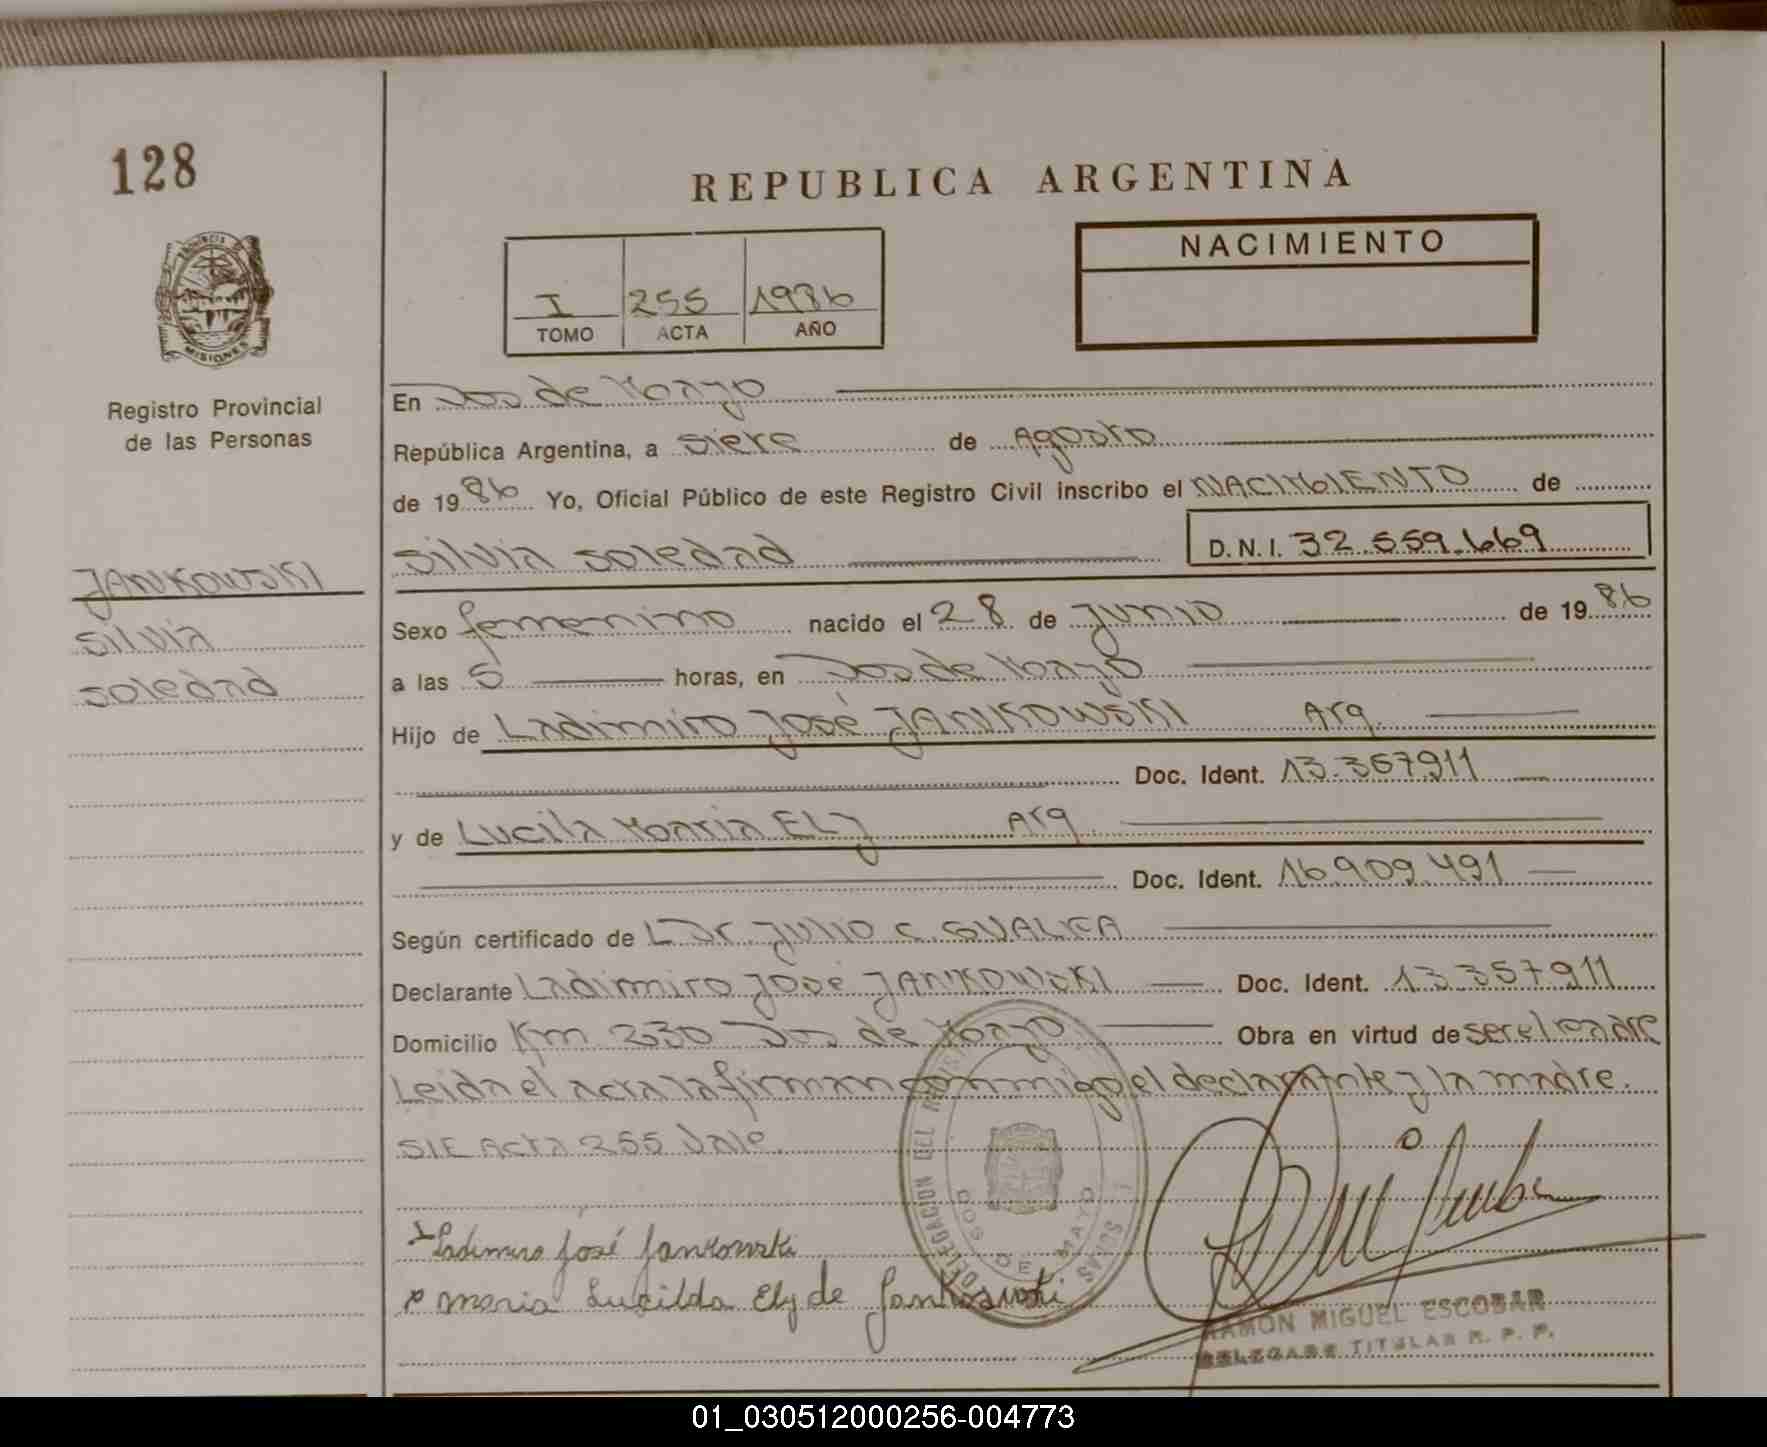 128
REPUBLICA ARGENTINA
NACIMIENTO
I 255 1986
TOMO ACTA AÑO
PROVINCIA DE
MISIONES
Registro Provincial
de las Personas
En Dos de Mayo
República Argentina, a siete de Agosto
de 1986 Yo, Oficial Público de este Registro Civil inscribo el NACIMIENTO de
Silvia Soledad D.N.I. 32.559.669
JANKOWSKI
Silvia
Soledad
Sexo femenino nacido el 28 de Junio de 1986
a las 5 horas, en Dos de Mayo
Hijo de Ladimiro José JANKOWSKI Arg.
Doc. Ident. 13.357911
y de Lucila Maria ELY Arg.
Doc. Ident. 16.909.491
Según certificado de Dr. JULIO C.
Declarante Ladimiro José JANKOWSKI Doc. Ident. 13.357911
Domicilio Km 230 Dos de Mayo Obra en virtud de ser el padre
Leida el acta la firman conmigo el declarante y la madre.
S/E Acta 255 Vale.
DELEGACION DEL
DOS DE MAYO
Ladimiro José Jankowski
Maria Lucilda Ely de Jankowski
RAMON MIGUEL ESCOBAR
DELEGADO TITULAR R. P. P.
01_030512000256-004773